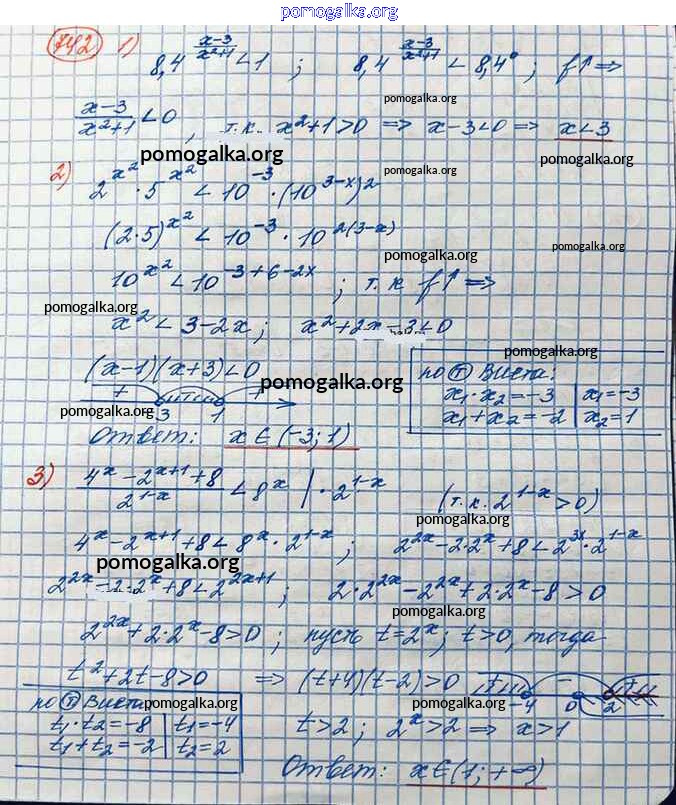 pomogalka.org
742 1) 8,4^((x-3)/(x²+1)) < 1 ; 8,4^((x-3)/(x²+1)) < 8,4⁰ ; f↑ ⇒
pomogalka.org
(x-3)/(x²+1) < 0 , т.к. x²+1>0 ⇒ x-3<0 ⇒ x<3
pomogalka.org
pomogalka.org
pomogalka.org
2) 2^(x²) · 5^(x²) < 10⁻³ · (10^(3-x))²
(2·5)^(x²) < 10⁻³ · 10^(2(3-x))
pomogalka.org
pomogalka.org
10^(x²) < 10^(-3+6-2x) ; т.к f↑ ⇒
pomogalka.org
x² < 3-2x ; x²+2x-3<0
pomogalka.org
(x-1)(x+3)<0
pomogalka.org
+ - +
-3 1
по Ⓣ Виета:
x₁·x₂=-3 | x₁=-3
x₁+x₂=-2 | x₂=1
Ответ: x∈(-3;1)
3) (4^x - 2^(x+1) + 8)/(2^(1-x)) < 8^x | · 2^(1-x) (т.к. 2^(1-x) > 0)
pomogalka.org
4^x - 2^(x+1) + 8 < 8^x · 2^(1-x) ; 2^(2x) - 2·2^x + 8 < 2^(3x) · 2^(1-x)
pomogalka.org
2^(2x) - 2·2^x + 8 < 2^(2x+1) ; 2·2^(2x) - 2^(2x) + 2·2^x - 8 > 0
pomogalka.org
2^(2x) + 2·2^x - 8 > 0 ; пусть t=2^x ; t>0, тогда
t²+2t-8>0 ⇒ (t+4)(t-2)>0
+ - +
-4 0 2
по Ⓣ Виета
pomogalka.org
t₁·t₂=-8 | t₁=-4
t₁+t₂=-2 | t₂=2
t>2 ; 2^x>2 ⇒ x>1
pomogalka.org
Ответ: x∈(1;+∞)